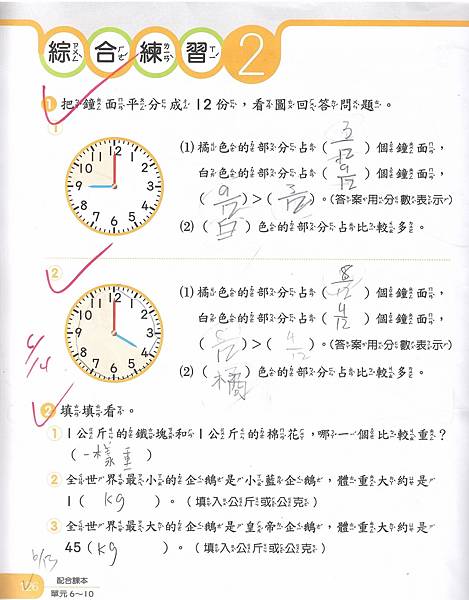 綜合練習 2
1 把鐘面平分成12份,看圖回答問題。
1
12 1 2 3 4 5 6 7 8 9 10 11
(1) 橘色的部分占( 3/12 )個鐘面,
白色的部分占( 9/12 )個鐘面,
( 9/12 )>( 3/12 )。(答案用分數表示)
(2) ( 白 )色的部分占比較多。
2
12 1 2 3 4 5 6 7 8 9 10 11
(1) 橘色的部分占( 8/12 )個鐘面,
白色的部分占( 4/12 )個鐘面,
( 8/12 )>( 4/12 )。(答案用分數表示)
(2) ( 橘 )色的部分占比較多。
2 填填看。
1 1公斤的鐵塊和1公斤的棉花,哪一個比較重?
( 一樣重 )
2 全世界最小的企鵝是小藍企鵝,體重大約是
1( kg )。(填入公斤或公克)
3 全世界最大的企鵝是皇帝企鵝,體重大約是
45( kg )。(填入公斤或公克)
6/13
配合課本
單元 6~10